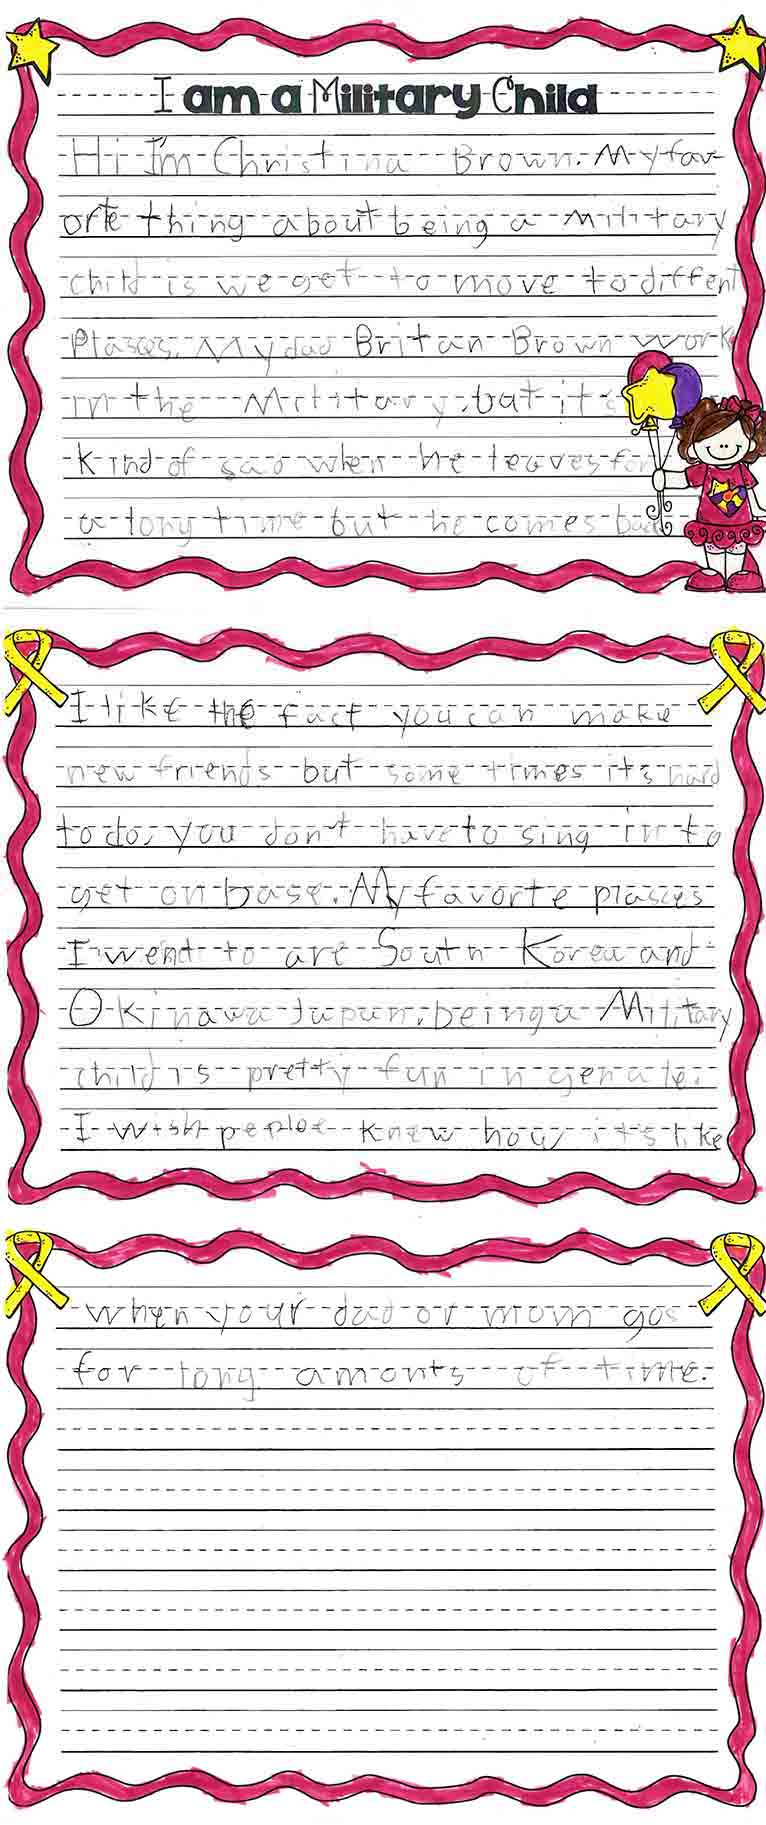 I am a Military Child
Hi I'm Christina Brown. My fav-
orte thing about being a Military
child is we get to move to diffent
Plasces. My dad Britan Brown work
in the Military, but it's
kind of sad when he leaves for
a long time but he comes back
I like the fact you can make
new friends but some times it's hard
to do. you don't have to sing in to
get on base. My favorte plasces
I went to are South Korea and
Okinawa Japan. being a Military
child is pretty fun in genale.
I wish peploe knew how it's like
when your dad or mom gos
for long amonts of time.